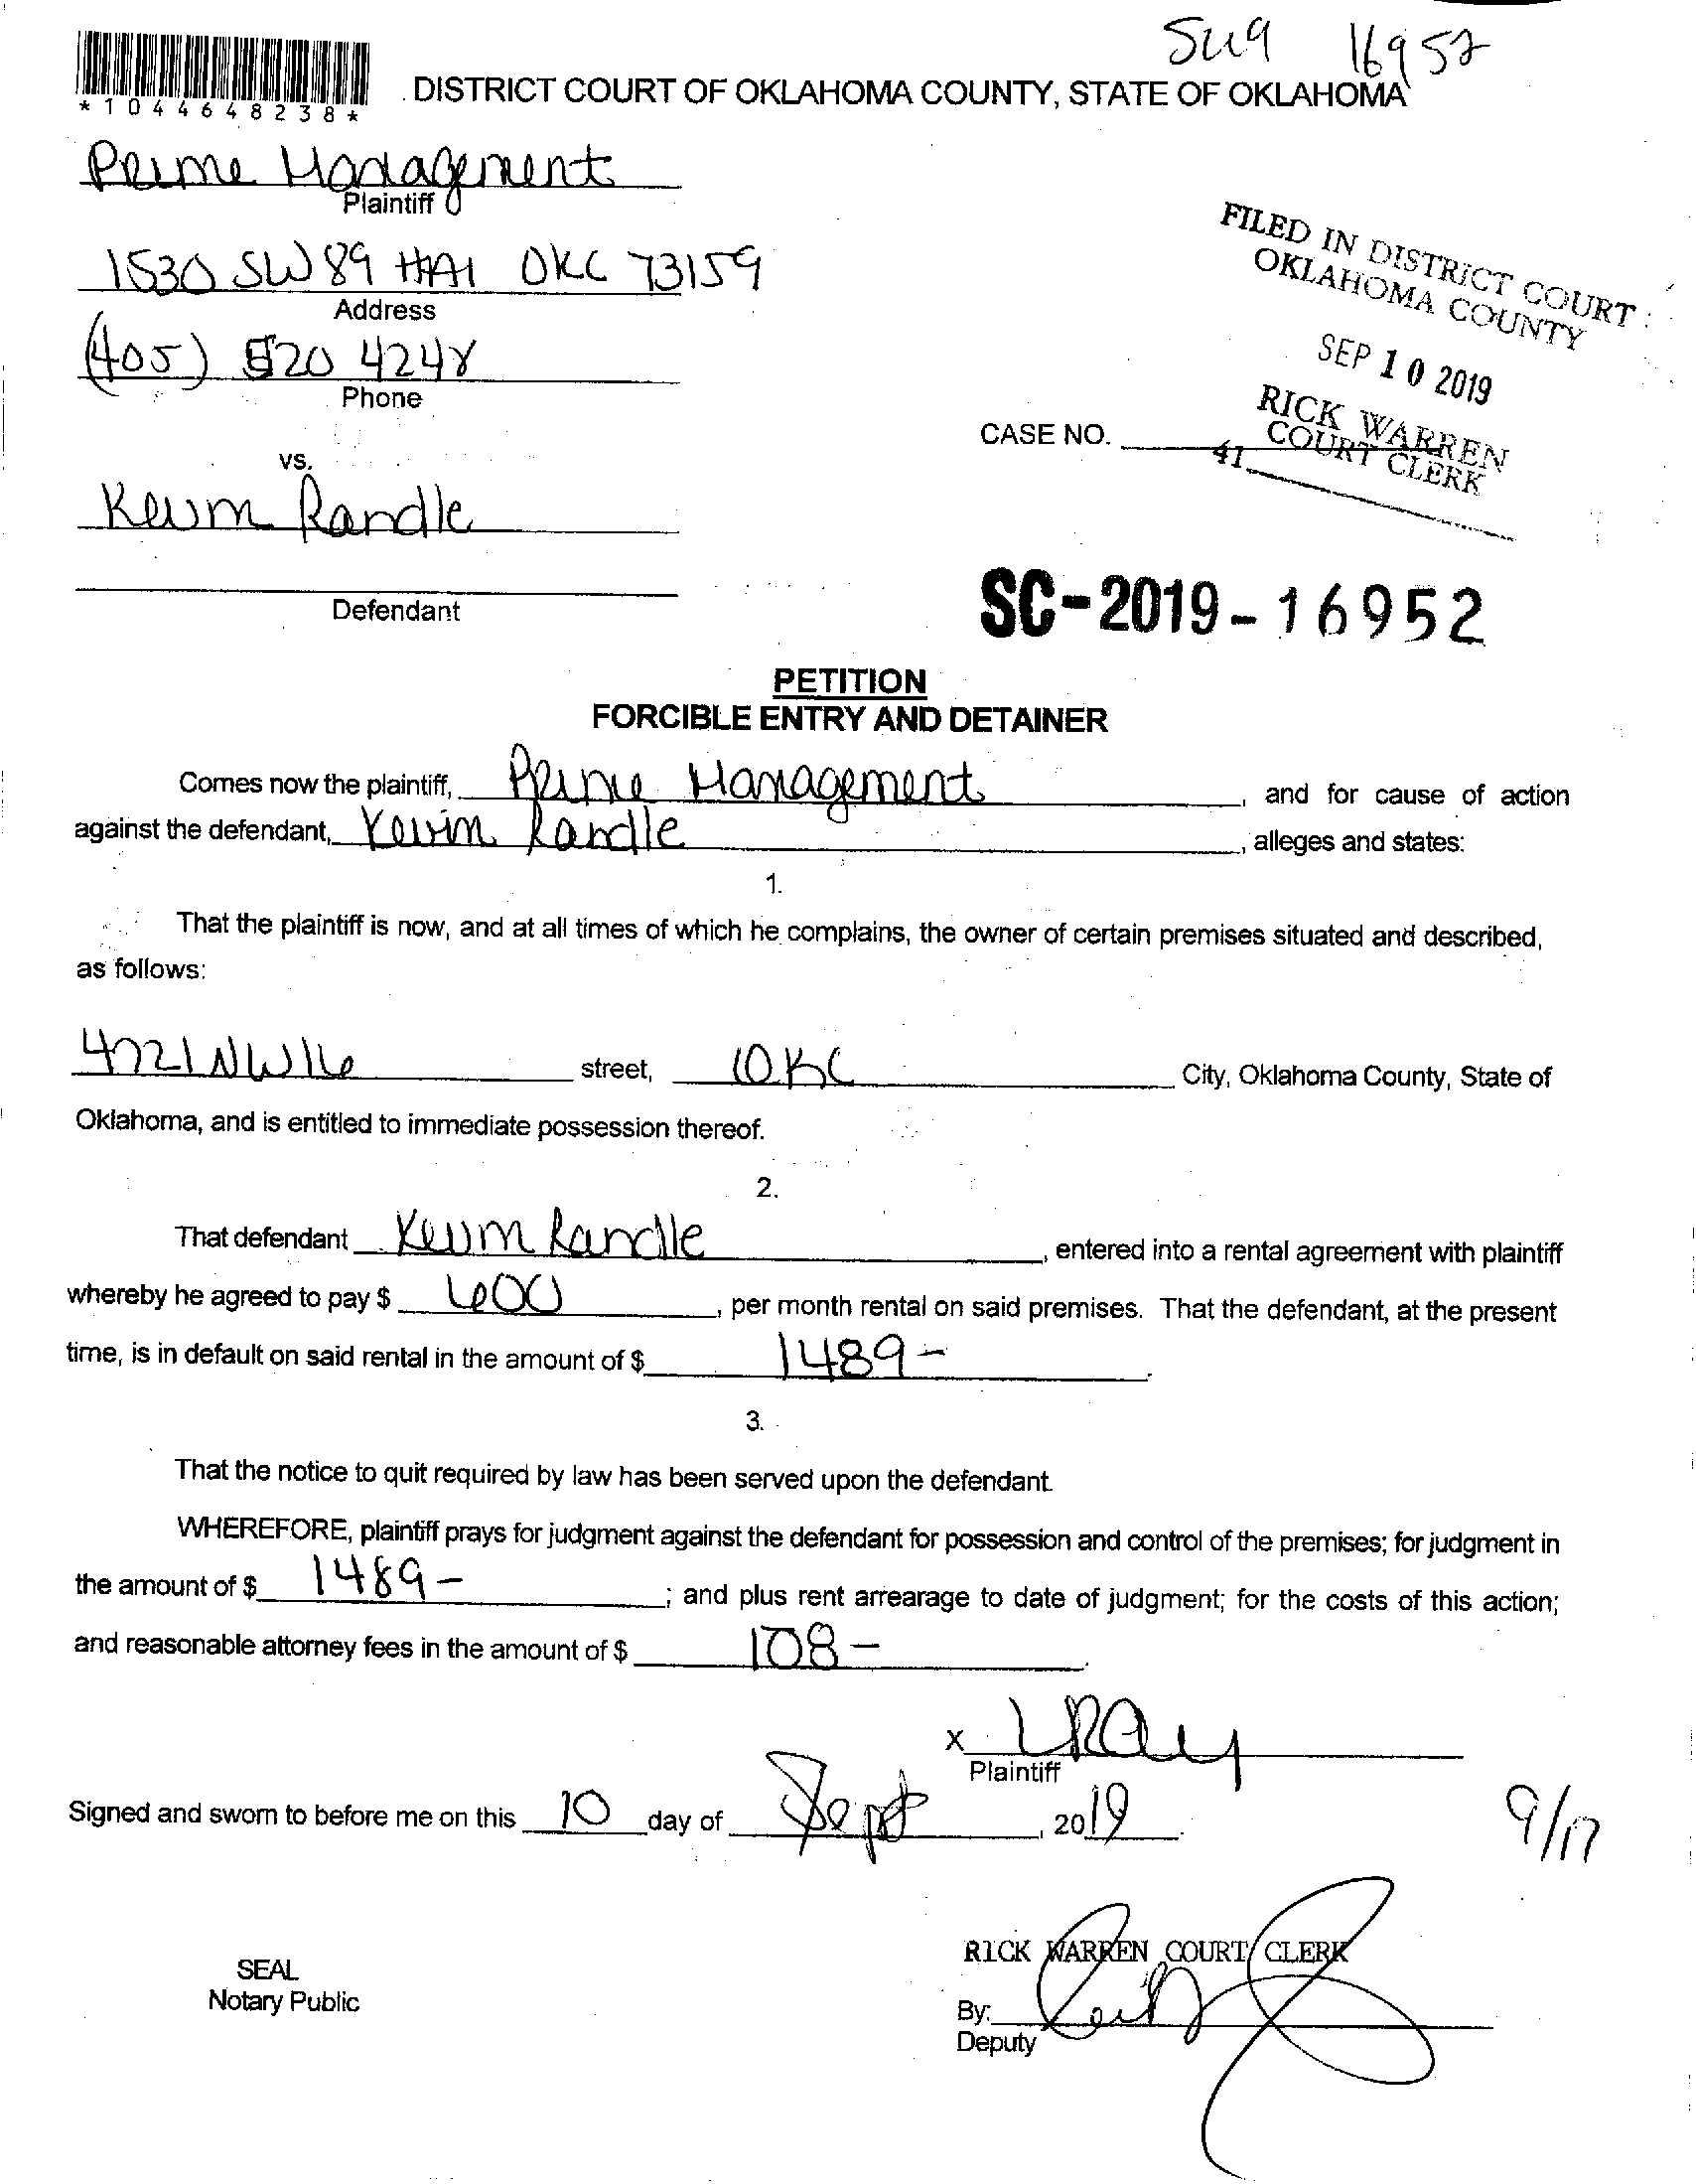 SC19 16952
*1044648238*
DISTRICT COURT OF OKLAHOMA COUNTY, STATE OF OKLAHOMA
Prime Management
Plaintiff
1530 SW 89 #A1 OKC 73159
Address
(405) 520 4248
Phone
FILED IN DISTRICT COURT
OKLAHOMA COUNTY
SEP 10 2019
RICK WARREN
COURT CLERK
41
CASE NO.
vs.
Kevin Randle
Defendant
SC-2019-16952
PETITION
FORCIBLE ENTRY AND DETAINER
Comes now the plaintiff, Prime Management, and for cause of action
against the defendant, Kevin Randle, alleges and states:
1.
That the plaintiff is now, and at all times of which he complains, the owner of certain premises situated and described,
as follows:
4721 NW 16 street, OKC City, Oklahoma County, State of
Oklahoma, and is entitled to immediate possession thereof.
2.
That defendant Kevin Randle, entered into a rental agreement with plaintiff
whereby he agreed to pay $ 600, per month rental on said premises. That the defendant, at the present
time, is in default on said rental in the amount of $ 1489-.
3.
That the notice to quit required by law has been served upon the defendant.
WHEREFORE, plaintiff prays for judgment against the defendant for possession and control of the premises; for judgment in
the amount of $ 1489-; and plus rent arrearage to date of judgment; for the costs of this action;
and reasonable attorney fees in the amount of $ 108-.
X LRay
Plaintiff
Signed and sworn to before me on this 10 day of Sept, 2019.
9/17
SEAL
Notary Public
RICK WARREN COURT CLERK
By:
Deputy